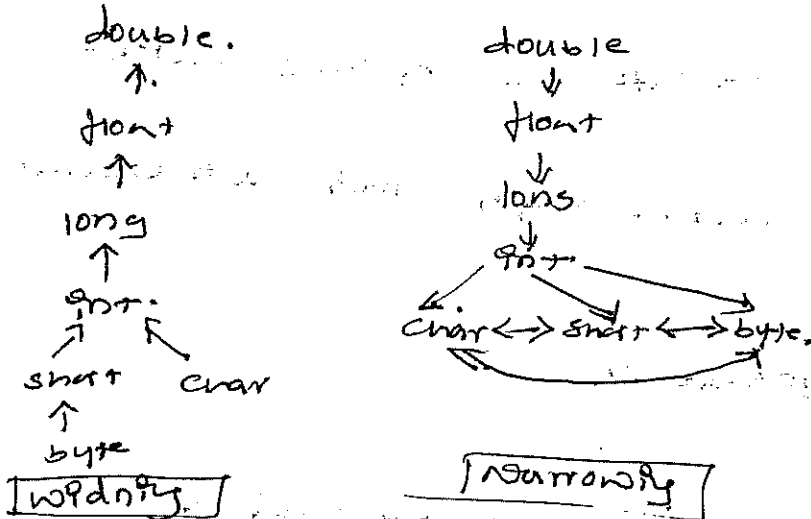 double.
float
long
int.
short char
byte
widning
double
float
long
int.
char short byte.
Narrowing